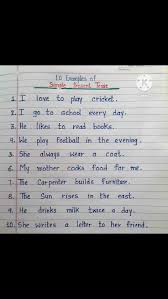 10 Examples of
Simple Present Tense
1. I love to play cricket.
2. I go to school every day.
3. He likes to read books.
4. We play football in the evening.
5. She always wear a coat.
6. My mother cooks food for me.
7. The Carpenter builds furniture.
8. The Sun rises in the east.
9. He drinks milk twice a day.
10. She writes a letter to her friend.